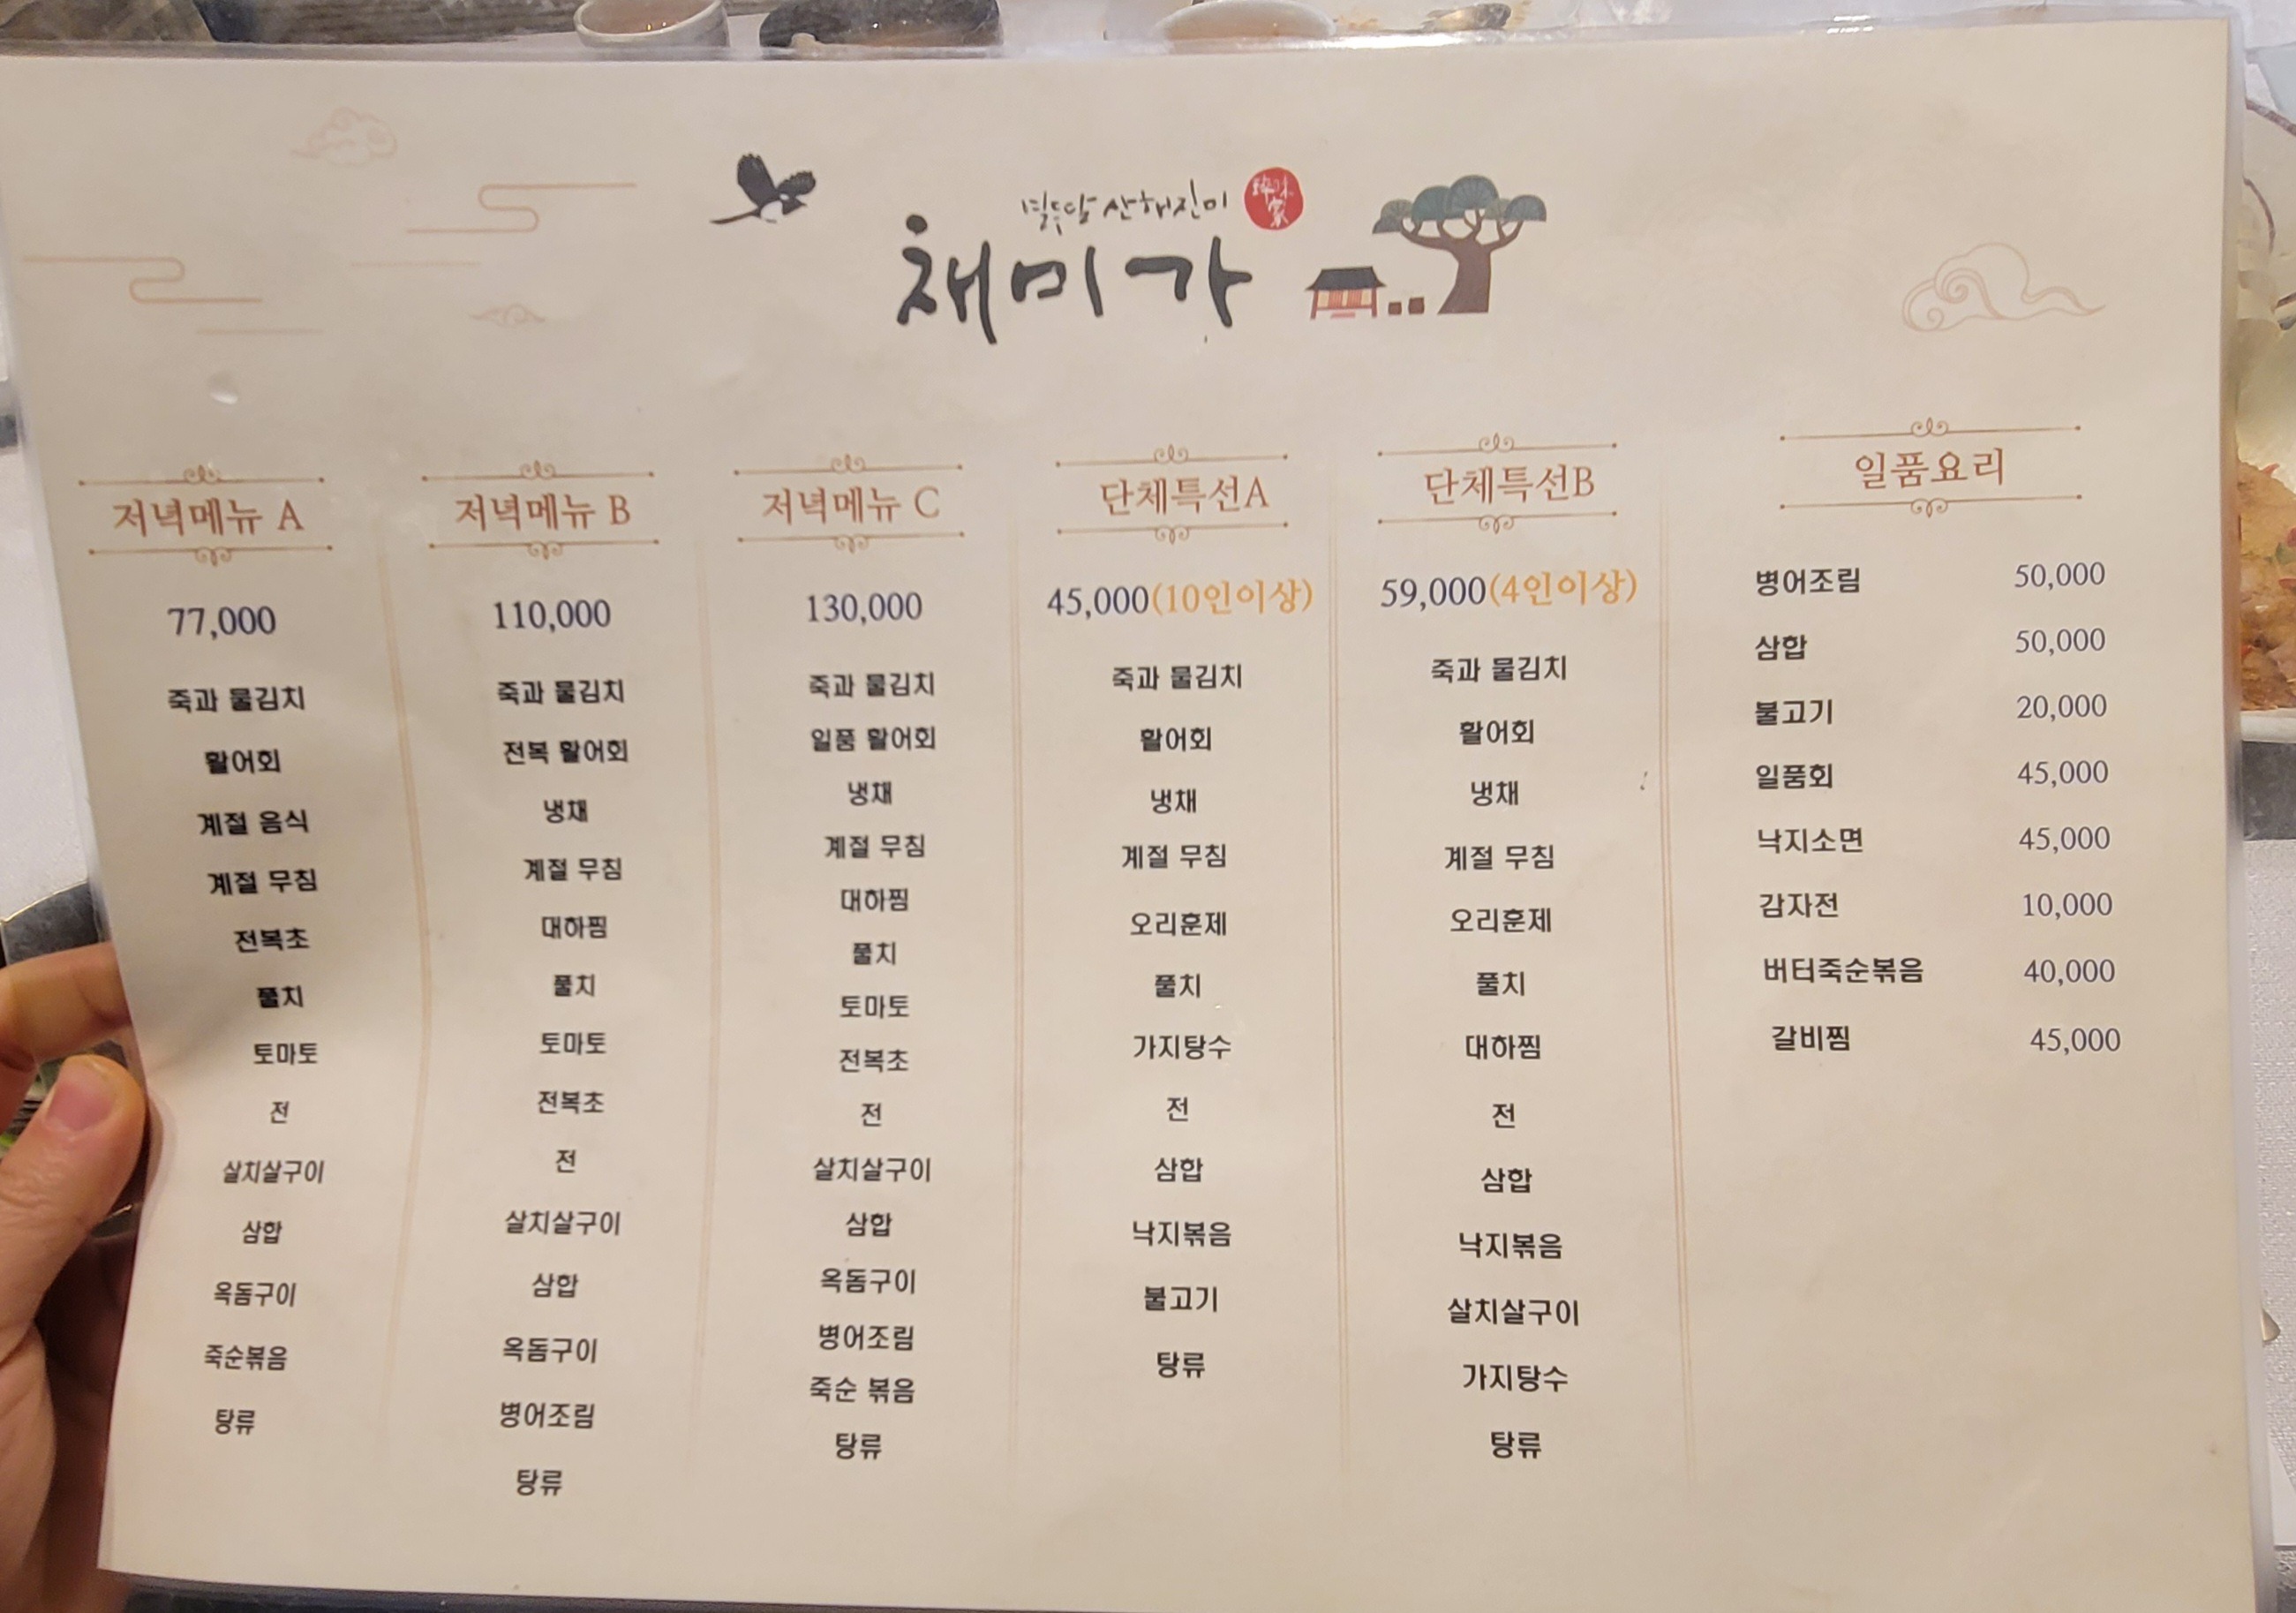 산해진미
채미가
저녁메뉴 A
77,000
죽과 물김치
활어회
계절 음식
계절 무침
전복초
풀치
토마토
전
살치살구이
삼합
옥돔구이
죽순볶음
탕류
저녁메뉴 B
110,000
죽과 물김치
전복 활어회
냉채
계절 무침
대하찜
풀치
토마토
전복초
전
살치살구이
삼합
옥돔구이
병어조림
탕류
저녁메뉴 C
130,000
죽과 물김치
일품 활어회
냉채
계절 무침
대하찜
풀치
토마토
전복초
전
살치살구이
삼합
옥돔구이
병어조림
죽순 볶음
탕류
단체특선A
45,000(10인이상)
죽과 물김치
활어회
냉채
계절 무침
오리훈제
풀치
가지탕수
전
삼합
낙지볶음
불고기
탕류
단체특선B
59,000(4인이상)
죽과 물김치
활어회
냉채
계절 무침
오리훈제
풀치
대하찜
전
삼합
낙지볶음
살치살구이
가지탕수
탕류
일품요리
병어조림 50,000
삼합 50,000
불고기 20,000
일품회 45,000
낙지소면 45,000
감자전 10,000
버터죽순볶음 40,000
갈비찜 45,000